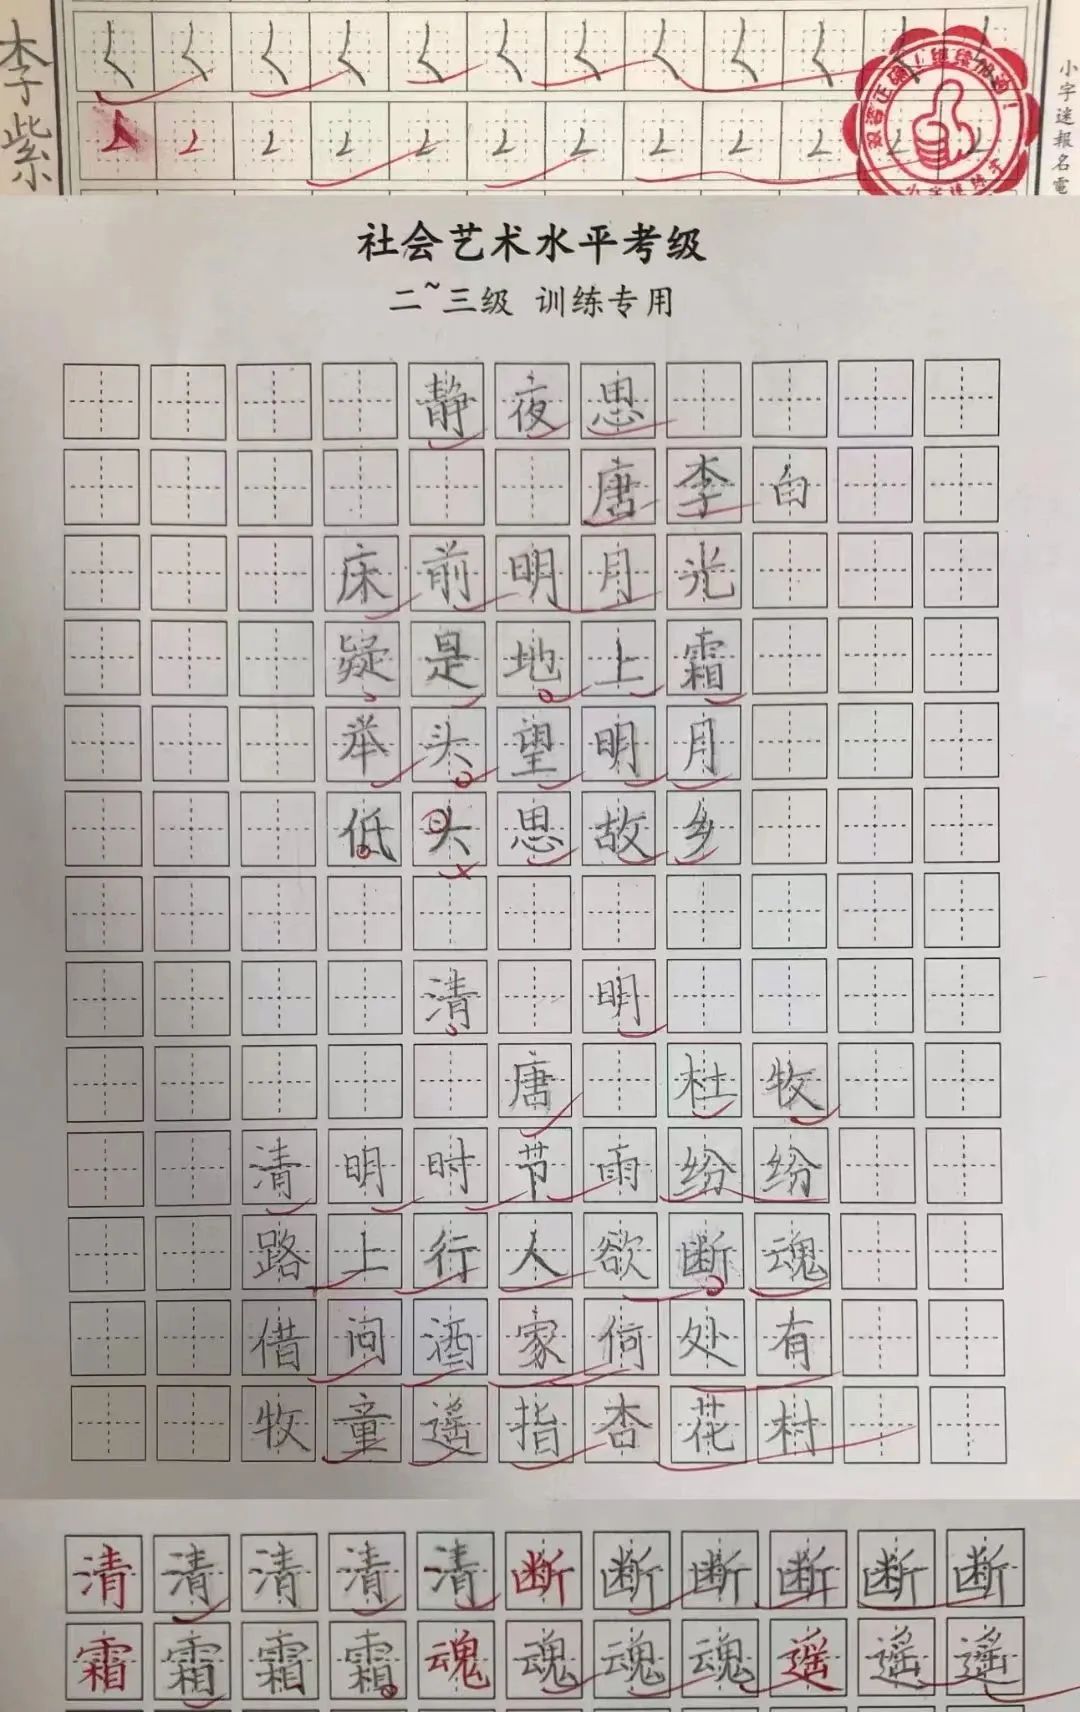 李紫
小字速報名電
社会艺术水平考级
二~三级 训练专用
静夜思
唐李白
床前明月光
疑是地上霜
举头望明月
低头思故乡
清明
唐杜牧
清明时节雨纷纷
路上行人欲断魂
借问酒家何处有
牧童遥指杏花村
清清清清清断断断断断断
霜霜霜霜魂魂魂魂遥遥遥